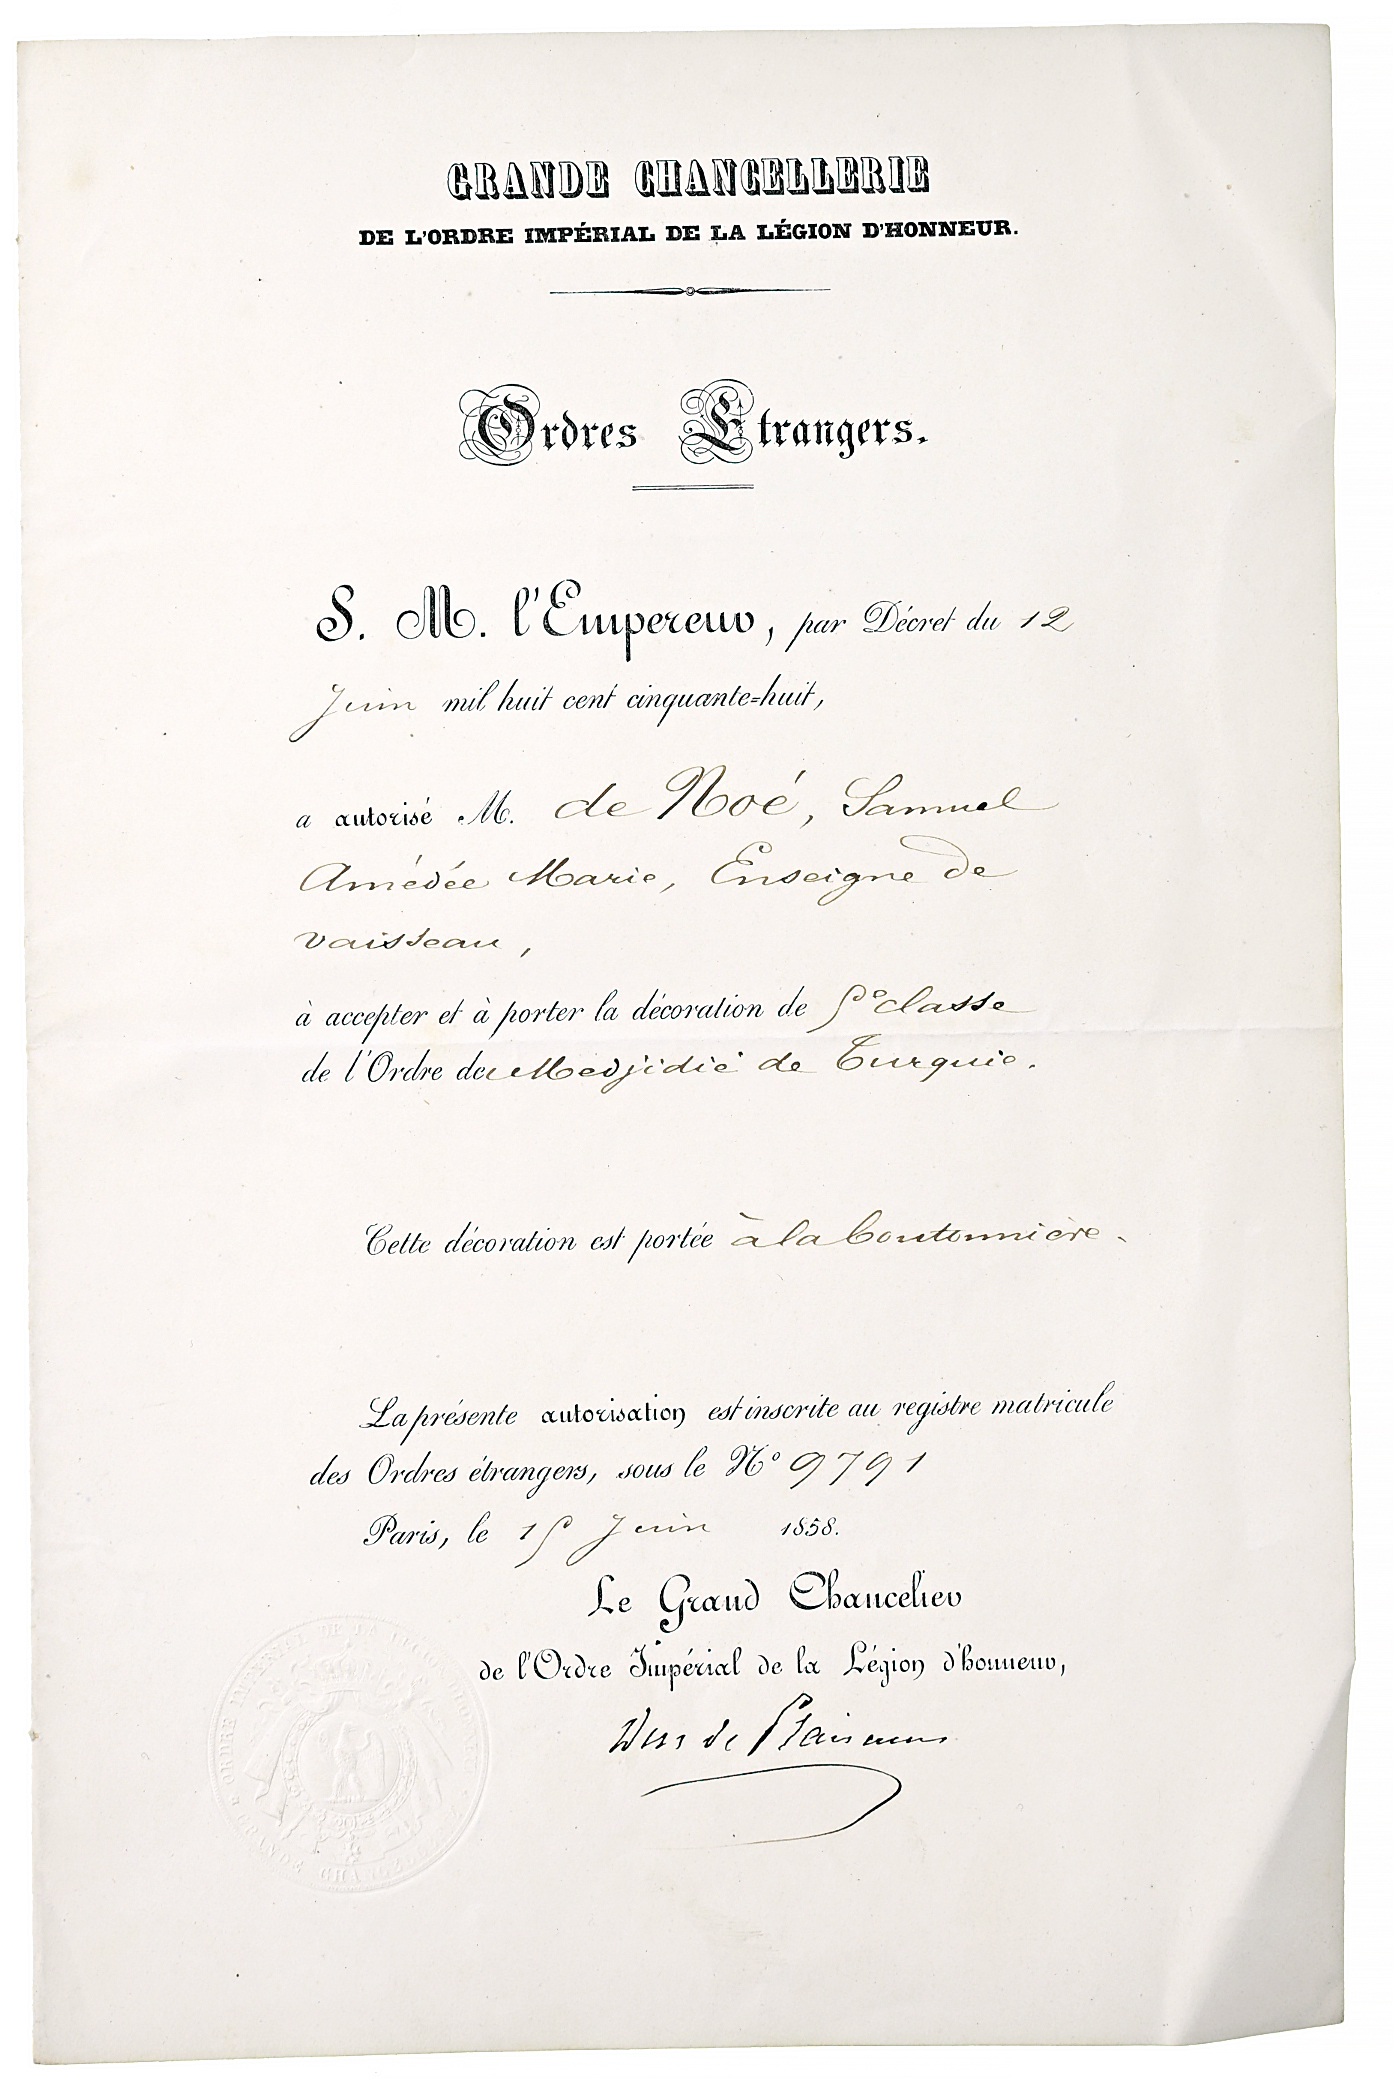 GRANDE CHANCELLERIE
DE L'ORDRE IMPÉRIAL DE LA LÉGION D'HONNEUR.
Ordres Etrangers.
S. M. l'Empereur, par Décret du 12
Juin mil huit cent cinquante=huit,
a autorisé M. de Noé, Samuel
Amédée Marie, Enseigne de
vaisseau,
à accepter et à porter la décoration de 5e classe
de l'Ordre du Medjidié de Turquie.
Cette décoration est portée à la boutonnière.
La présente autorisation est inscrite au registre matricule
des Ordres étrangers, sous le No 9791
Paris, le 15 Juin 1858.
Le Grand Chancelier
de l'Ordre Impérial de la Légion d'honneur,
de Plaisance
ORDRE IMPÉRIAL DE LA LÉGION D'HONNEUR
GRANDE CHANCELLERIE